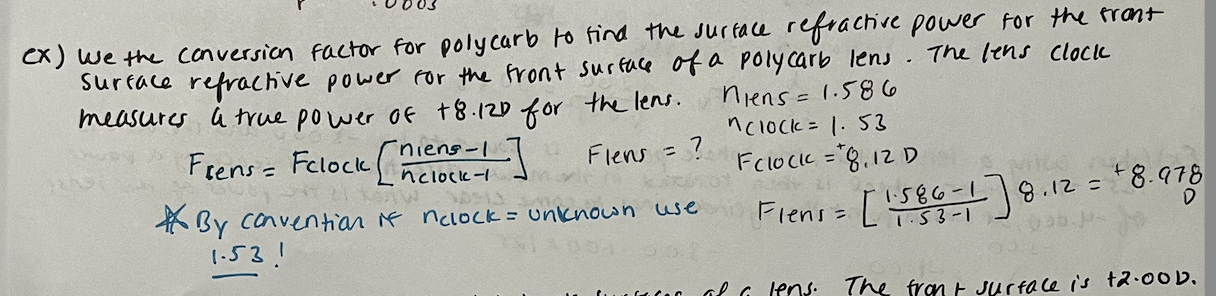 .0003
ex) We the conversion factor for polycarb to find the surface refractive power for the front
surface refractive power for the front surface of a polycarb lens. The lens clock
measures a true power of +8.12D for the lens.
nlens = 1.586
nclock = 1.53
Flens = Fclock [nlens-1 / nclock-1]
Flens = ?
Fclock = +8.12 D
Flens = [1.586-1 / 1.53-1] 8.12 = +8.978 D
* By convention if nclock = unknown use
1.53!
of a lens. The front surface is +2.00D.